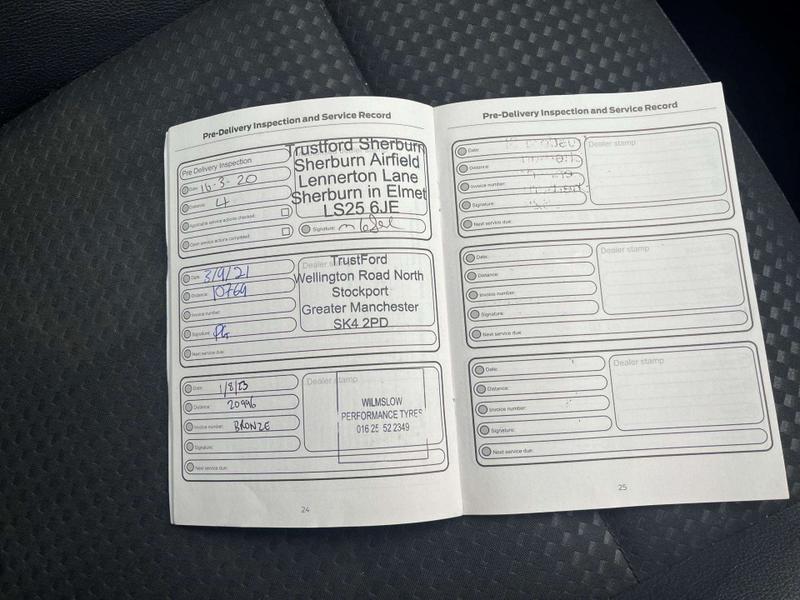 Pre-Delivery Inspection and Service Record
Pre Delivery Inspection
Date: 16-3-20
Distance: 4
Applicable service actions checked:
Open service actions completed:
Trustford Sherburn
Sherburn Airfield
Lennerton Lane
Sherburn in Elmet
LS25 6JE
Signature:
Date: 3/9/21
Distance: 10769
Invoice number:
Signature: PG
Next service due:
Dealer stamp
TrustFord
Wellington Road North
Stockport
Greater Manchester
SK4 2PD
Date: 1/8/23
Distance: 20996
Invoice number: BRONZE
Signature:
Next service due:
Dealer stamp
WILMSLOW
PERFORMANCE TYRES
016 25 52 2349
24
Pre-Delivery Inspection and Service Record
Date:
Distance:
Invoice number:
Signature:
Next service due:
Dealer stamp
Date:
Distance:
Invoice number:
Signature:
Next service due:
Dealer stamp
Date:
Distance:
Invoice number:
Signature:
Next service due:
Dealer stamp
25